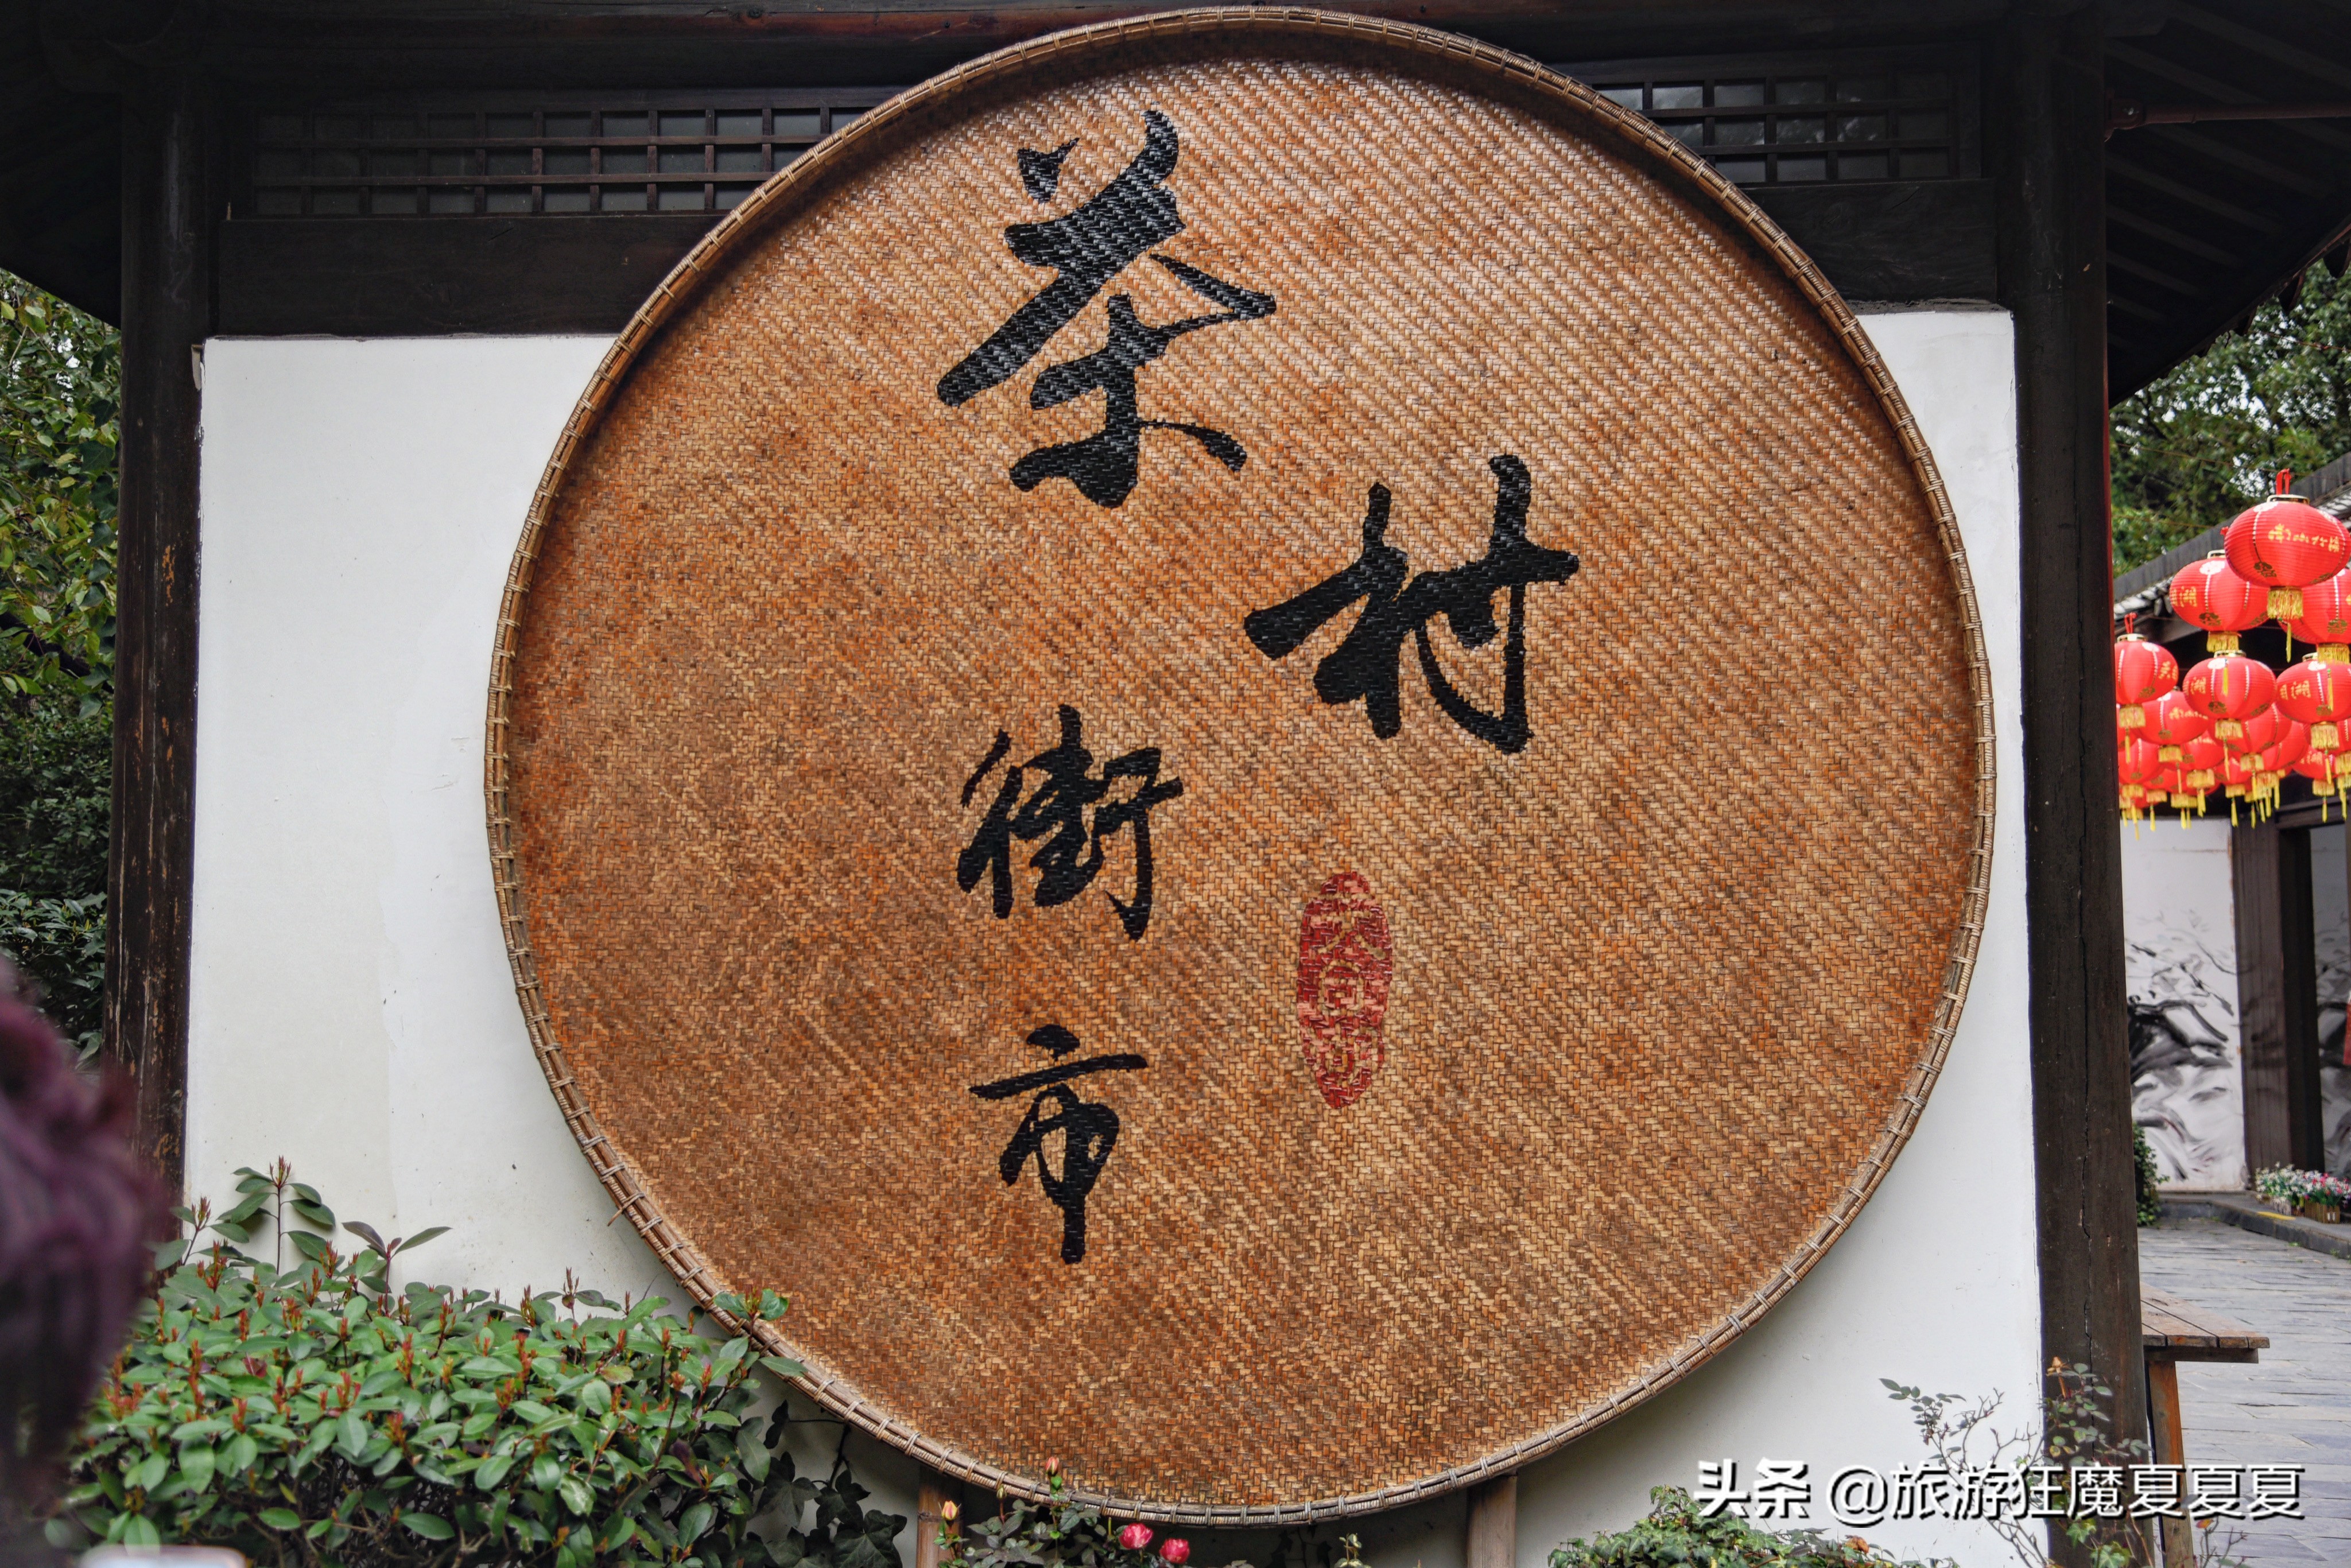 茶
村
街
市
头条 @旅游狂魔夏夏夏